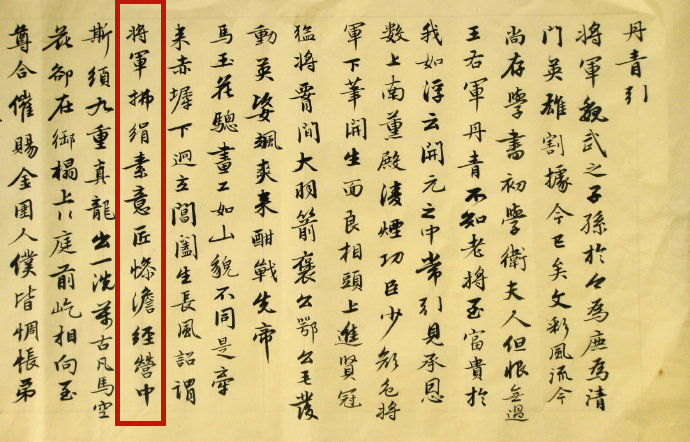 丹青引
將軍魏武之子孫於今為庶為清
門英雄割據今已矣文彩風流今
尚存學書初學衛夫人但恨無過
王右軍丹青不知老將至富貴於
我如浮云開元之中常引見承恩
數上南薰殿凌煙功臣少顏色將
軍下筆開生面良相頭上進賢冠
猛將腰間大羽箭褒公鄂公毛髮
動英姿颯爽來酣戰先帝
馬玉花驄畫工如山貌不同是牽
来赤墀下迥立閶闔生長風詔謂
將軍拂絹素意匠慘澹經營中
斯須九重真龍出一洗萬古凡馬空
花卻在御榻上々庭前屹相向至
尊含催賜金圉人僕皆惆悵弟